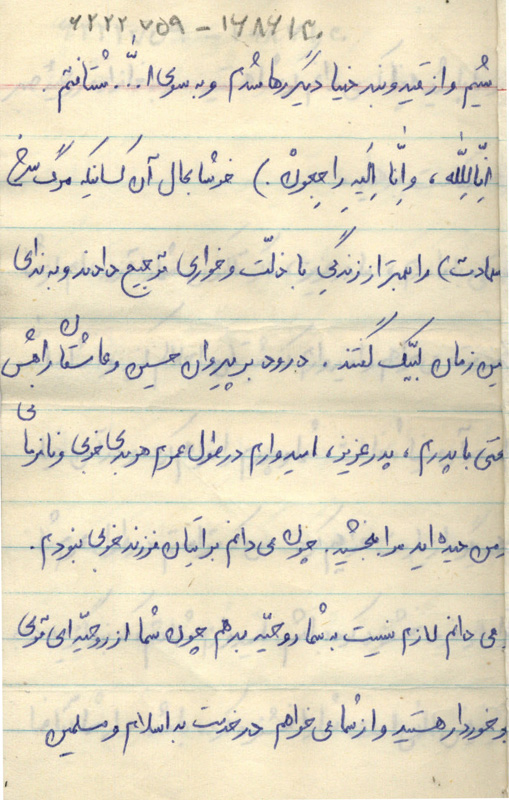 ۶۲۲۲,۷۵۹ - ۱۶۸۶۱۳۰
شیم و از قید و بند دنیا دیگر رها شدم و به سوی ا... شتافتم
اِنّالِلّه، وَاِنّا اِلَیهِ راجِعون.) خوشا بحال آن کسانیکه مرگ سرخ
سعادت) را بهتر از زندگی با ذلّت و خواری ترجیح دادند و به ندای
ین زمان لبّیک گفتند. درود بر پیروان حسین و عاشقان راهش
متی با پدرم، پدر عزیز، امیدوارم در طول عمرم هر بدی خوبی و نافرمانی
من دیده اید مرا ببخشید. چون می دانم برایتان فرزند خوبی نبودم.
می دانم لازم نیست به شما روحیّه بدهم چون شما از روحیّه ای قوی
برخوردار هستید و از شما می خواهم در خدمت به اسلام و مسلمین